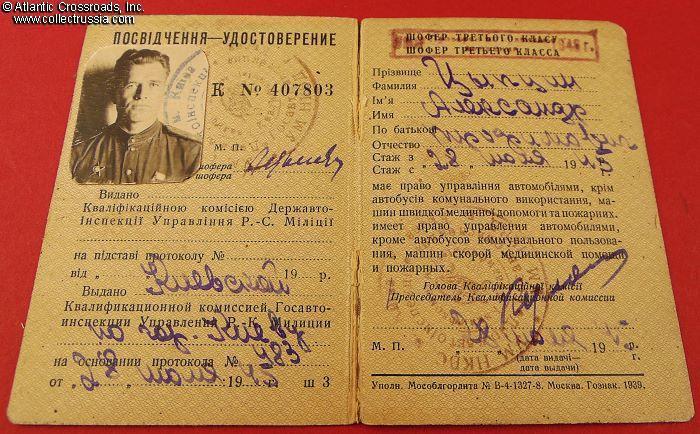 © Atlantic Crossroads, Inc.
www.collectrussia.com
ПОСВІДЧЕННЯ—УДОСТОВЕРЕНИЕ
К № 407803
М. П.
шофера
шофера
Видано
Кваліфікаційною комісією Державто-
інспекції Управління Р.-С. Міліції
на підставі протоколу №
від 19 р.
Киевской
Выдано
Квалификационной комиссией Госавто-
инспекции Управления Р.-К. Милиции
по гор. Киеву
на основании протокола № 483
от 28 мая 1945 ш 3
ШОФЕР ТРЕТЬОГО КЛАСУ
ШОФЕР ТРЕТЬЕГО КЛАССА
Прізвище
Фамилия
Ім'я
Имя Александр
По батькові
Отчество
Стаж з
Стаж с 28 мая 1945 г.
має право управління автомобілями, крім
автобусів комунального використання, ма-
шин швидкої медичної допомоги та пожарних.
имеет право управления автомобилями,
кроме автобусов коммунального пользова-
ния, машин скорой медицинской помощи
и пожарных.
Голова Кваліфікаційної комісії
Председатель Квалификационной комиссии
28 мая 1945 р.
М. П. г.
(дата видачі—
дата выдачи)
Уполн. Мособлгорлита № В-4-1327-8. Москва. Гознак. 1939.